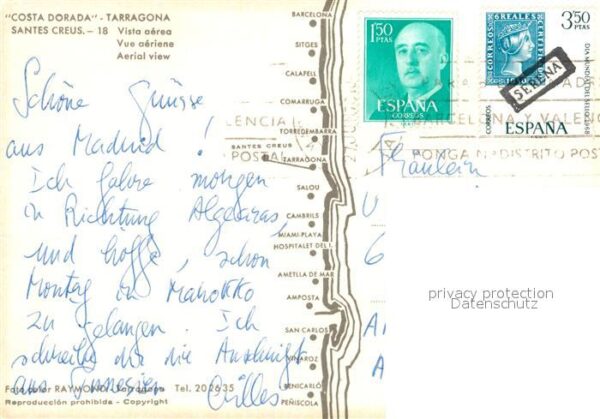 "COSTA DORADA" - TARRAGONA
SANTES CREUS. - 18 Vista aérea
Vue aériene
Aerial view
Schöne Grüsse
aus Madrid !
Ich fahre morgen
in Richtung Algeciras,
und hoffe, schon
Montag in Marokko
zu gelangen. Ich
schreibe dir die Auskunft
aus Tunesien
Gilles
Foto color RAYMOND - Tarragona Tel. 20 26 35
Reproducción prohibida - Copyright
BARCELONA
SITGES
CALAFELL
COMARRUGA
TORREDEMBARRA
SANTES CREUS
TARRAGONA
SALOU
CAMBRILS
MIAMI-PLAYA
HOSPITALET DEL I.
AMETLLA DE MAR
AMPOSTA
SAN CARLOS
VINAROZ
BENICARLÓ
PEÑISCOLA
1'50
PTAS
ESPAÑA
CORREOS
6 REALES
CORREOS
CERTIFICADO
1850
3'50
PTAS
DIA MUNDIAL DEL SELLO 1968
SERENA
CORREOS
ESPAÑA
BARCELONA Y VALENCIA
PONGA Nº DISTRITO POSTAL
LENCIA
POSTAL
Fräulein
privacy protection
Datenschutz